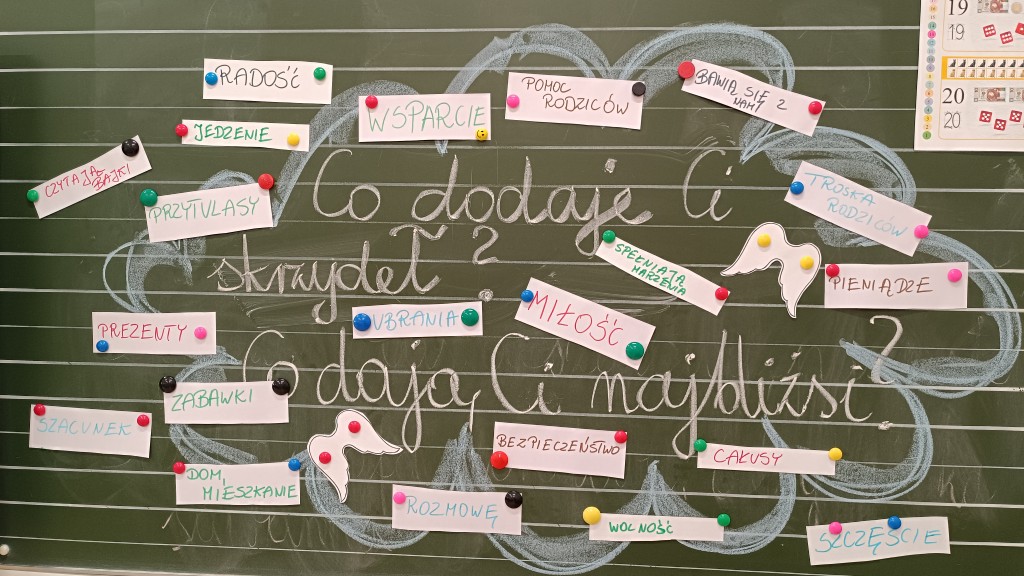 RADOŚĆ
WSPARCIE
POMOC
RODZICÓW
BAWIĄ SIĘ Z
NAMI
19
19
20
20
JEDZENIE
CZYTAJĄ
BAJKI
PRZYTULASY
Co dodaje Ci
skrzydeł?
TROSKA
RODZICÓW
SPEŁNIAJĄ
MARZENIA
PIENIĄDZE
UBRANIA
MIŁOŚĆ
PREZENTY
Co dają Ci najbliżsi?
ZABAWKI
SZACUNEK
BEZPIECZEŃSTWO
CAŁUSY
DOM,
MIESZKANIE
ROZMOWĘ
WOLNOŚĆ
SZCZĘŚCIE